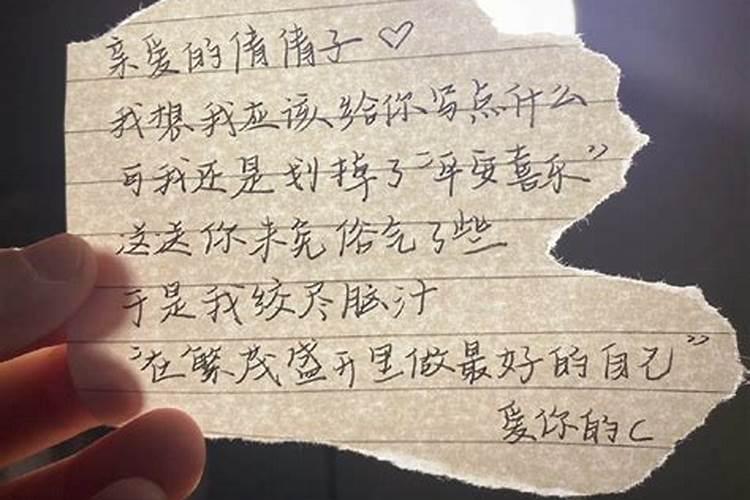 亲爱的倩倩子♡
我想我应该给你写点什么
可我还是划掉了“平安喜乐”
这送你未免俗气了些
于是我绞尽脑汁
“在繁茂盛开里做最好的自己”
爱你的C